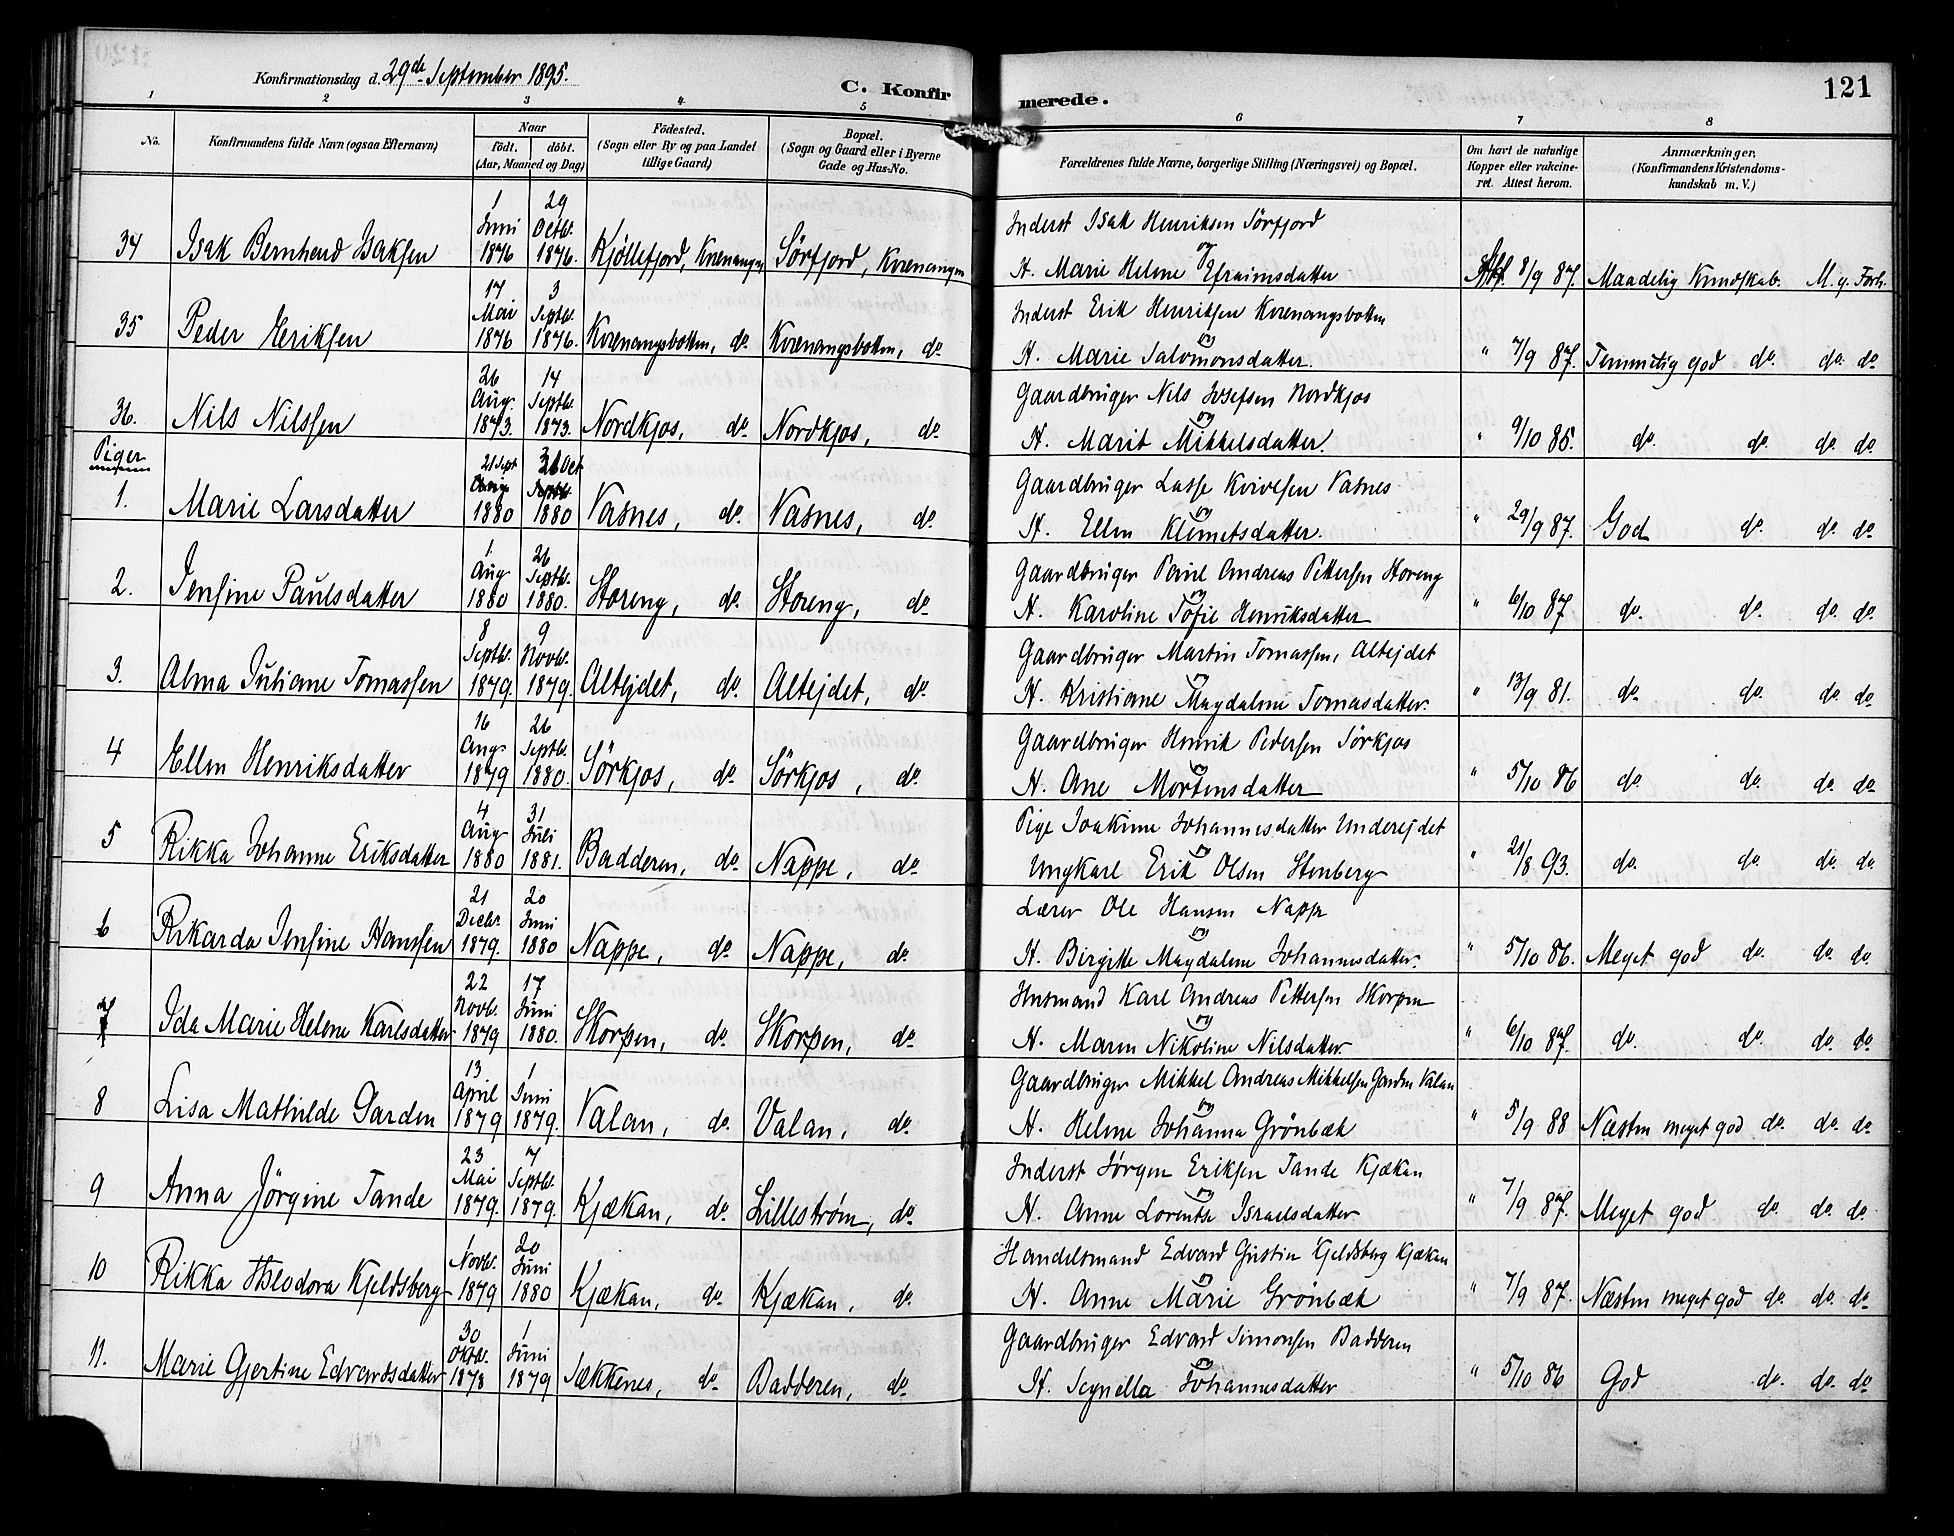 Konfirmationsdag d. 29de September 1895. C. Konfirmerede. 121
1 2 3 4 5 6 7 8
No. Konfirmandens fulde Navn (ogsaa Efternavn) Naar födt. döbt. (Aar, Maaned og Dag) Födested. (Sogn eller By og paa Landet tillige Gaard) Bopæl. (Sogn og Gaard eller i Byerne Gade og Hus-No. Forældrenes fulde Navne, borgerlige Stilling (Næringsvei) og Bopæl. Om havt de naturlige Kopper eller vakcineret. Attest herom. Anmærkninger, (Konfirmandens Kristendomskundskab m. V.)
34 Isak Bernhard Isaksen 1 Juni 1876 29 Octbr. 1876. Kjöllefjord, Kvænangen Sörfjord, Kvænangen Inderst Isak Henriksen Sörfjord og H. Marie Helene Efraimsdatter Att. 8/9 87. Maadelig Kundskab. M. g. Forh.
35 Peder Eriksen 17 Mai 1876 3 Septbr. 1876. Kvænangsbotten, do. Kvænangsbotten, do. Inderst Erik Henriksen Kvænangsbotten og H. Marie Salomonsdatter. " 7/9 87. Temmelig god do. do. do
36. Nils Nilssen 26 Aug. 1873. 14 Septbr. 1873. Nordkjos, do. Nordkjos, do. Gaardbruger Nils Josefsen Nordkjos og H. Marit Mikkelsdatter. " 9/10 85. do. do. do. do
Piger
1. Marie Larsdatter 21 Sept 1880 31 Oct 1880 Vasnes, do. Vasnes, do. Gaardbruger Lasse Kvivesen Vasnes og H. Ellen Klemetsdatter. " 29/9 87. God do. do. do.
2. Jensine Paulsdatter 1 Aug 1880 26 Septbr. 1880. Storeng, do. Storeng, do. Gaardbruger Paul Andreas Pettersen Storeng og H. Karoline Tofie Henriksdatter " 6/10 87 do. do. do. do.
3. Alma Juliane Tomassen 8 Septbr. 1879. 9 Novbr. 1879. Altejdet, do. Altejdet, do. Gaardbruger Martin Tomassen, Altejdet og H. Kristiane Magdalene Tomasdatter. " 13/9 81. do. do. do. do
4 Ellen Henriksdatter 16 Aug. 1879 26 Septbr. 1880. Sörkjos, do. Sörkjos, do. Gaardbruger Henrik Pedersen Sörkjos og H. Ane Mortensdatter " 5/10 86 do. do. do. do
5 Rikka Johanne Eriksdatter 4 Aug 1880 31 Juli 1881. Badderen, do. Nappe, do. Pige Joakime Johannesdatter Underejdet og Ungkarl Erik Olsen Stenberg " 21/8 93. do. do. do. do
6 Rikarda Jensine Hanssen 21 Decbr. 1879. 20 Juni 1880 Nappe, do. Nappe, do. Lærer Ole Hansen Nappe og H. Birgitte Magdalene Johannesdatter. " 5/10 86. Meget god do. do. do.
7 Ida Marie Helene Karlsdatter 22 Novbr. 1879 17 Juni 1880. Skorpen, do. Skorpen, do. Husmand Karl Andreas Pettersen Skorpen og H. Maren Nikoline Nilsdatter " 6/10 87. do. do. do. do
8 Lisa Mathilde Garden 13 April 1879 1 Juni 1879. Valan, do. Valan, do. Gaardbruger Mikkel Andreas Mikkelsen Garden Valan og H. Helene Johanna Grönbæk " 5/9 88 Næsten meget god do. do. do
9 Anna Jörgine Tande 23 Mai 1879. 7 Septbr. 1879. Kjækan, do. Lilleström, do. Inderst Jörgen Eriksen Tande Kjækan og H. Anne Lorentse Israelsdatter " 7/9 87. Meget god do. do. do.
10 Rikka Kjeldsberg 1 Novbr. 1879 20 Juni 1880 Kjækan, do. Kjækan, do. Handelsmand Edvard Gustin Kjeldsberg Kjækan og H. Anne Marie Grönbæk " 7/9 87. Næsten meget god do. do. do
11. Marie Gjertine Edvardsdatter 30 Oktbr. 1878 1 Juni 1879 Sækkenes, do. Badderen, do. Gaardbruger Edvard Simonsen Badderen og H. Johannesdatter " 5/10 86 God do. do. do